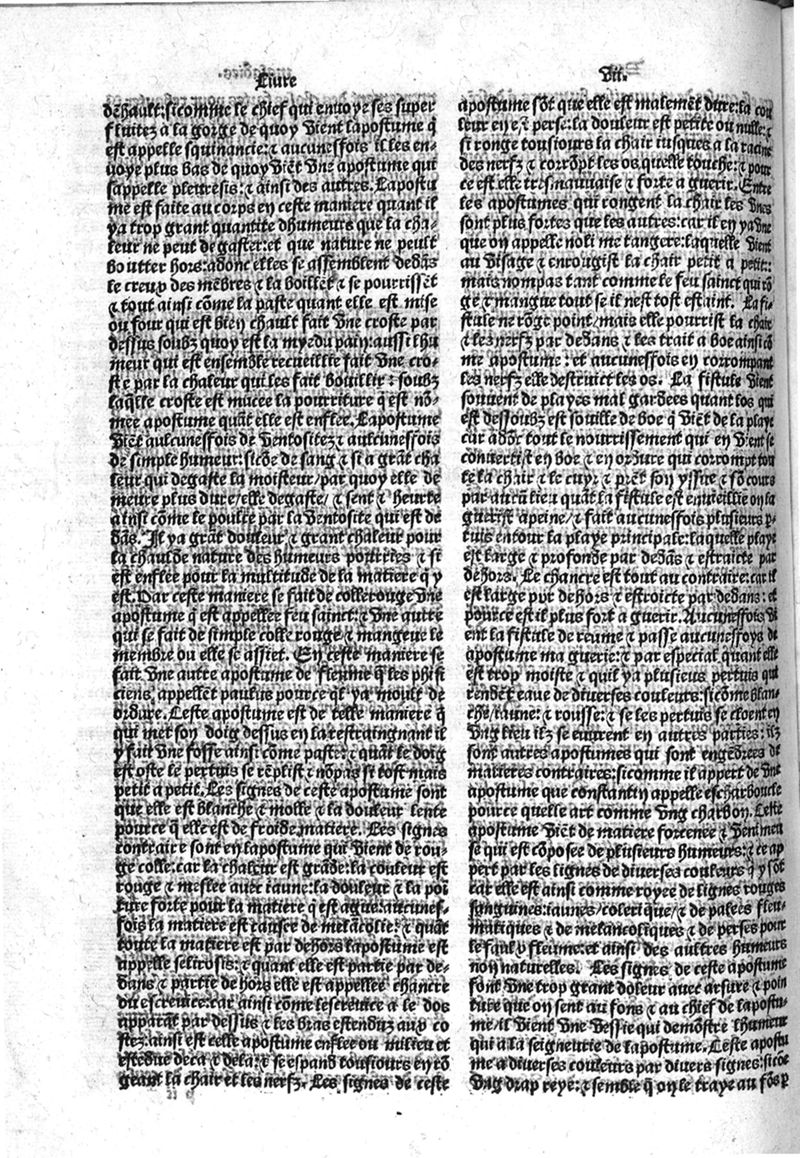 Liure
dehault: sicomme le chief qui enuoye ses super
fluitez a la gorge de quoy vient lapostume q̃
est appelle squinancie: ⁊ aucunesfois il les en-
uoye plus bas de quoy viẽt vne apostume qui
sappelle pleuresis: ⁊ ainsi des autres. Lapostu
me est faite au corps en ceste maniere quant il
ya trop grant quantite dhumeurs que la cha-
leur ne peut degaster: et que nature ne peult
boutter hors: adonc elles se assemblent dedãs
le creux des mẽbres ⁊ la boillẽt ⁊ se pourrissẽt
⁊ tout ainsi cõme la paste quant elle est mise
ou four qui est bien chault fait vne croste par
dessus soubz quoy est la mye du pain: aussi lhu
meur qui est ensemble recueillie fait vne cro-
ste par la chaleur qui les fait bouillir: soubz
laq̃lle croste est mucee la pourriture q̃ est nõ-
mee apostume quãt elle est enflee. Lapostume
viẽt aulcunesfois de ventositez ⁊ aulcunesfois
de simple humeur: sicõe de sang ⁊ si a grãt cha
leur qui degaste la moisteur/ par quoy elle de
meure plus dure/ elle degaste/ ⁊ sent ⁊ heurte
ainsi cõme le poulce par la ventosite qui est de
dãs. Il ya grãt douleur ⁊ grant chaleur pour
la chaulde nature des humeurs pourries ⁊ si
est enflee pour la multitude de la matiere q̃ y
est. Par ceste maniere se fait de colle rouge vne
apostume q̃ est appellee feu sainct: ⁊ vne autre
qui se fait de simple colle rouge ⁊ mangeur le
membre ou elle se assiet. En ceste maniere se
fait vne autre apostume de fleume q̃ les phisi
ciens appellẽt paulus pource q̃l ya moult de
ordure. Ceste apostume est de telle maniere q̃
qui met son doig dessus en la restraingnant il
y fait vne fosse ainsi cõme paste: ⁊ quãt le doig
est oste le pertuis se rẽplist ⁊ nõpas si tost mais
petit a petit. Les signes de ceste apostume sont
que elle est blanche ⁊ molle ⁊ la douleur lente
pource q̃ elle est de froide matiere. Les signes
contraire sont en lapostume qui vient de rou-
ge colle: car la chaleur est grãde: la couleur est
rouge ⁊ meslee auec iaune: la douleur ⁊ la poi
ture forte pour la matiere q̃ est ague: aucunes-
fois la matiere est causee de melãcolie: ⁊ quãt
toute la matiere est par dehors lapostume est
appelle selirosis: ⁊ quant elle est partie par de-
dans ⁊ partie de hors elle est appellee chancre
ou escreuice: car ainsi cõme lescreuice a le dos
apparãt par dessus ⁊ les bras estenduz aux co
stez: ainsi est celle apostume enflee ou milieu et
estẽdue deca ⁊ dela: ⁊ se espand tousiours en rõ
geant la chair et les nerfz. Les signes de ceste
vii.
apostume sõt que elle est malemẽt dure: la cou
leur en est perse: la douleur est petite ou nulle: ⁊
si ronge tousiours la chair iusques a la racine
des nerfz ⁊ corrõpt les os quelle touche: ⁊ pour
ce est elle tresmauuaise ⁊ forte a guerir. Entre
les apostumes qui rongent la chair les vnes
sont plus fortes que les autres: car il en ya vne
que on appelle noli me tangere: laquelle vient
au visage ⁊ enrougist la chair petit a petit:
mais nompas tant comme le feu sainct qui rõ
ge ⁊ mangue tout se il nest tost estaint. La fi-
stule ne rõge point/ mais elle pourrist la chair
⁊ les nerfz par dedãs ⁊ les trait a boe ainsi cõ
me apostume: et aucunesfois en corrompant
les nerfz elle destruict les os. La fistule vient
souuent de playes mal gardees quant los qui
est dessoubz est souille de boe q̃ viẽt de la playe
car adõc tout le nourrissement qui en vient se
conuertist en boe ⁊ en ordure qui corrompt tou
te la chair ⁊ le cuyr ⁊ prẽt son yssue ⁊ sõ cours
par aucũ lieu quãt la fistule est enuieillie on la
guerist apeine/ ⁊ fait aucunesfois plusieurs p̱-
tuis entour la playe principale: laquelle playe
est large ⁊ profonde par dedãs ⁊ estraicte par
dehors. Le chancre est tout au contraire: car il
est large par dehors ⁊ estroicte par dedans: et
pource est il plus fort a guerir. Aucunesfois vi
ent la fistule de reume ⁊ passe aucunesfoys de
apostume ma guerie: ⁊ par especial quant elle
est trop moiste ⁊ quil ya plusieurs pertuis qui
rendẽt eaue de diuerses couleurs: sicõme blan-
che/ iaune: ⁊ rousse: ⁊ se les pertuis se cloent en
vng lieu ilz se euurent en autres parties: ilz
sont autres apostumes qui sont engẽdrees de
matieres contraires: sicomme il appert de vne
apostume que constantin appelle escharboucle
pource quelle art comme vng charbon. Ceste
apostume viẽt de matiere forcenee ⁊ venimeu
se qui est cõposee de plusieurs humeurs: ⁊ ce ap
pert par les lignes de diuerses couleurs q̃ y sõt
car elle est ainsi comme royee de lignes rouges
sanguines: iaunes/ colerique/ ⁊ de palees fleu-
matiques ⁊ de melancoliques ⁊ de perses pour
le saul y fleume: et ainsi des aultres humeurs
non naturelles. Les signes de ceste apostume
sont vne trop grant doleur auec arsure ⁊ poin
ture que on sent au fons ⁊ au chief de lapostu-
me/ il vient vne vessie qui demõstre lhumeur
qui a la seigneurie de lapostume. Ceste apostu
me a diuerses couleurs par diuers signes: sicõe
vng drap reye: ⁊ semble q̃ on le traye au fõs p̱